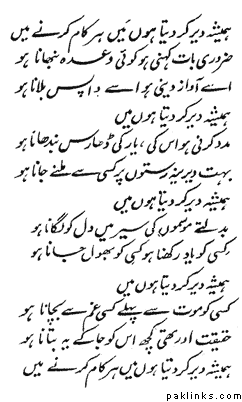 ہمیشہ دیر کر دیتا ہوں میں ہر کام کرنے میں
ضروری بات کہنی ہو کوئی وعدہ نبھانا ہو
اسے آواز دینی ہو اسے واپس بلانا ہو
ہمیشہ دیر کر دیتا ہوں میں
مدد کرنی ہو اس کی، یار کی ڈھارس بندھانا ہو
بہت دیرینہ رستوں پر کسی سے ملنے جانا ہو
ہمیشہ دیر کر دیتا ہوں میں
بدلتے موسموں کی سیر میں دل کو لگانا ہو
کسی کو یاد رکھنا ہو کسی کو بھول جانا ہو
ہمیشہ دیر کر دیتا ہوں میں
کسی کو موت سے پہلے کسی غم سے بچانا ہو
حقیقت اور تھی کچھ اس کو جا کے یہ بتانا ہو
ہمیشہ دیر کر دیتا ہوں میں ہر کام کرنے میں
paklinks.com